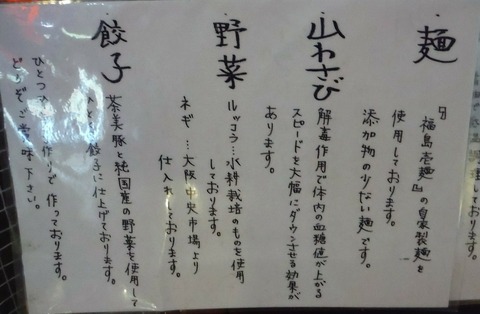 ・麺
『福島壱麺』の自家製麺を
使用しております。
添加物の少ない麺です。
・山わさび
解毒作用で体内の血糖値が上がる
スピードを大幅にダウンさせる効果が
あります。
・野菜
ルッコラ…水耕栽培のものを使用
しております。
ネギ…大阪中央市場より
仕入れしております。
・餃子
茶美豚と純国産の野菜を使用して
餃子に仕上げております。
作りで作っております。
どうぞご賞味下さい。
しております。